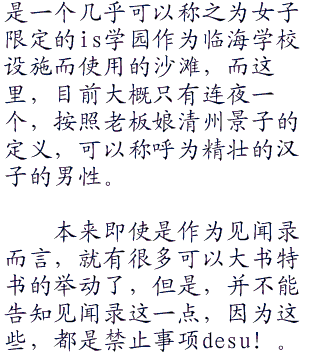 是一个几乎可以称之为女子
限定的is学园作为临海学校
设施而使用的沙滩，而这
里，目前大概只有连夜一
个，按照老板娘清州景子的
定义，可以称呼为精壮的汉
子的男性。
本来即使是作为见闻录
而言，就有很多可以大书特
书的举动了，但是，并不能
告知见闻录这一点，因为这
些，都是禁止事项desu！。